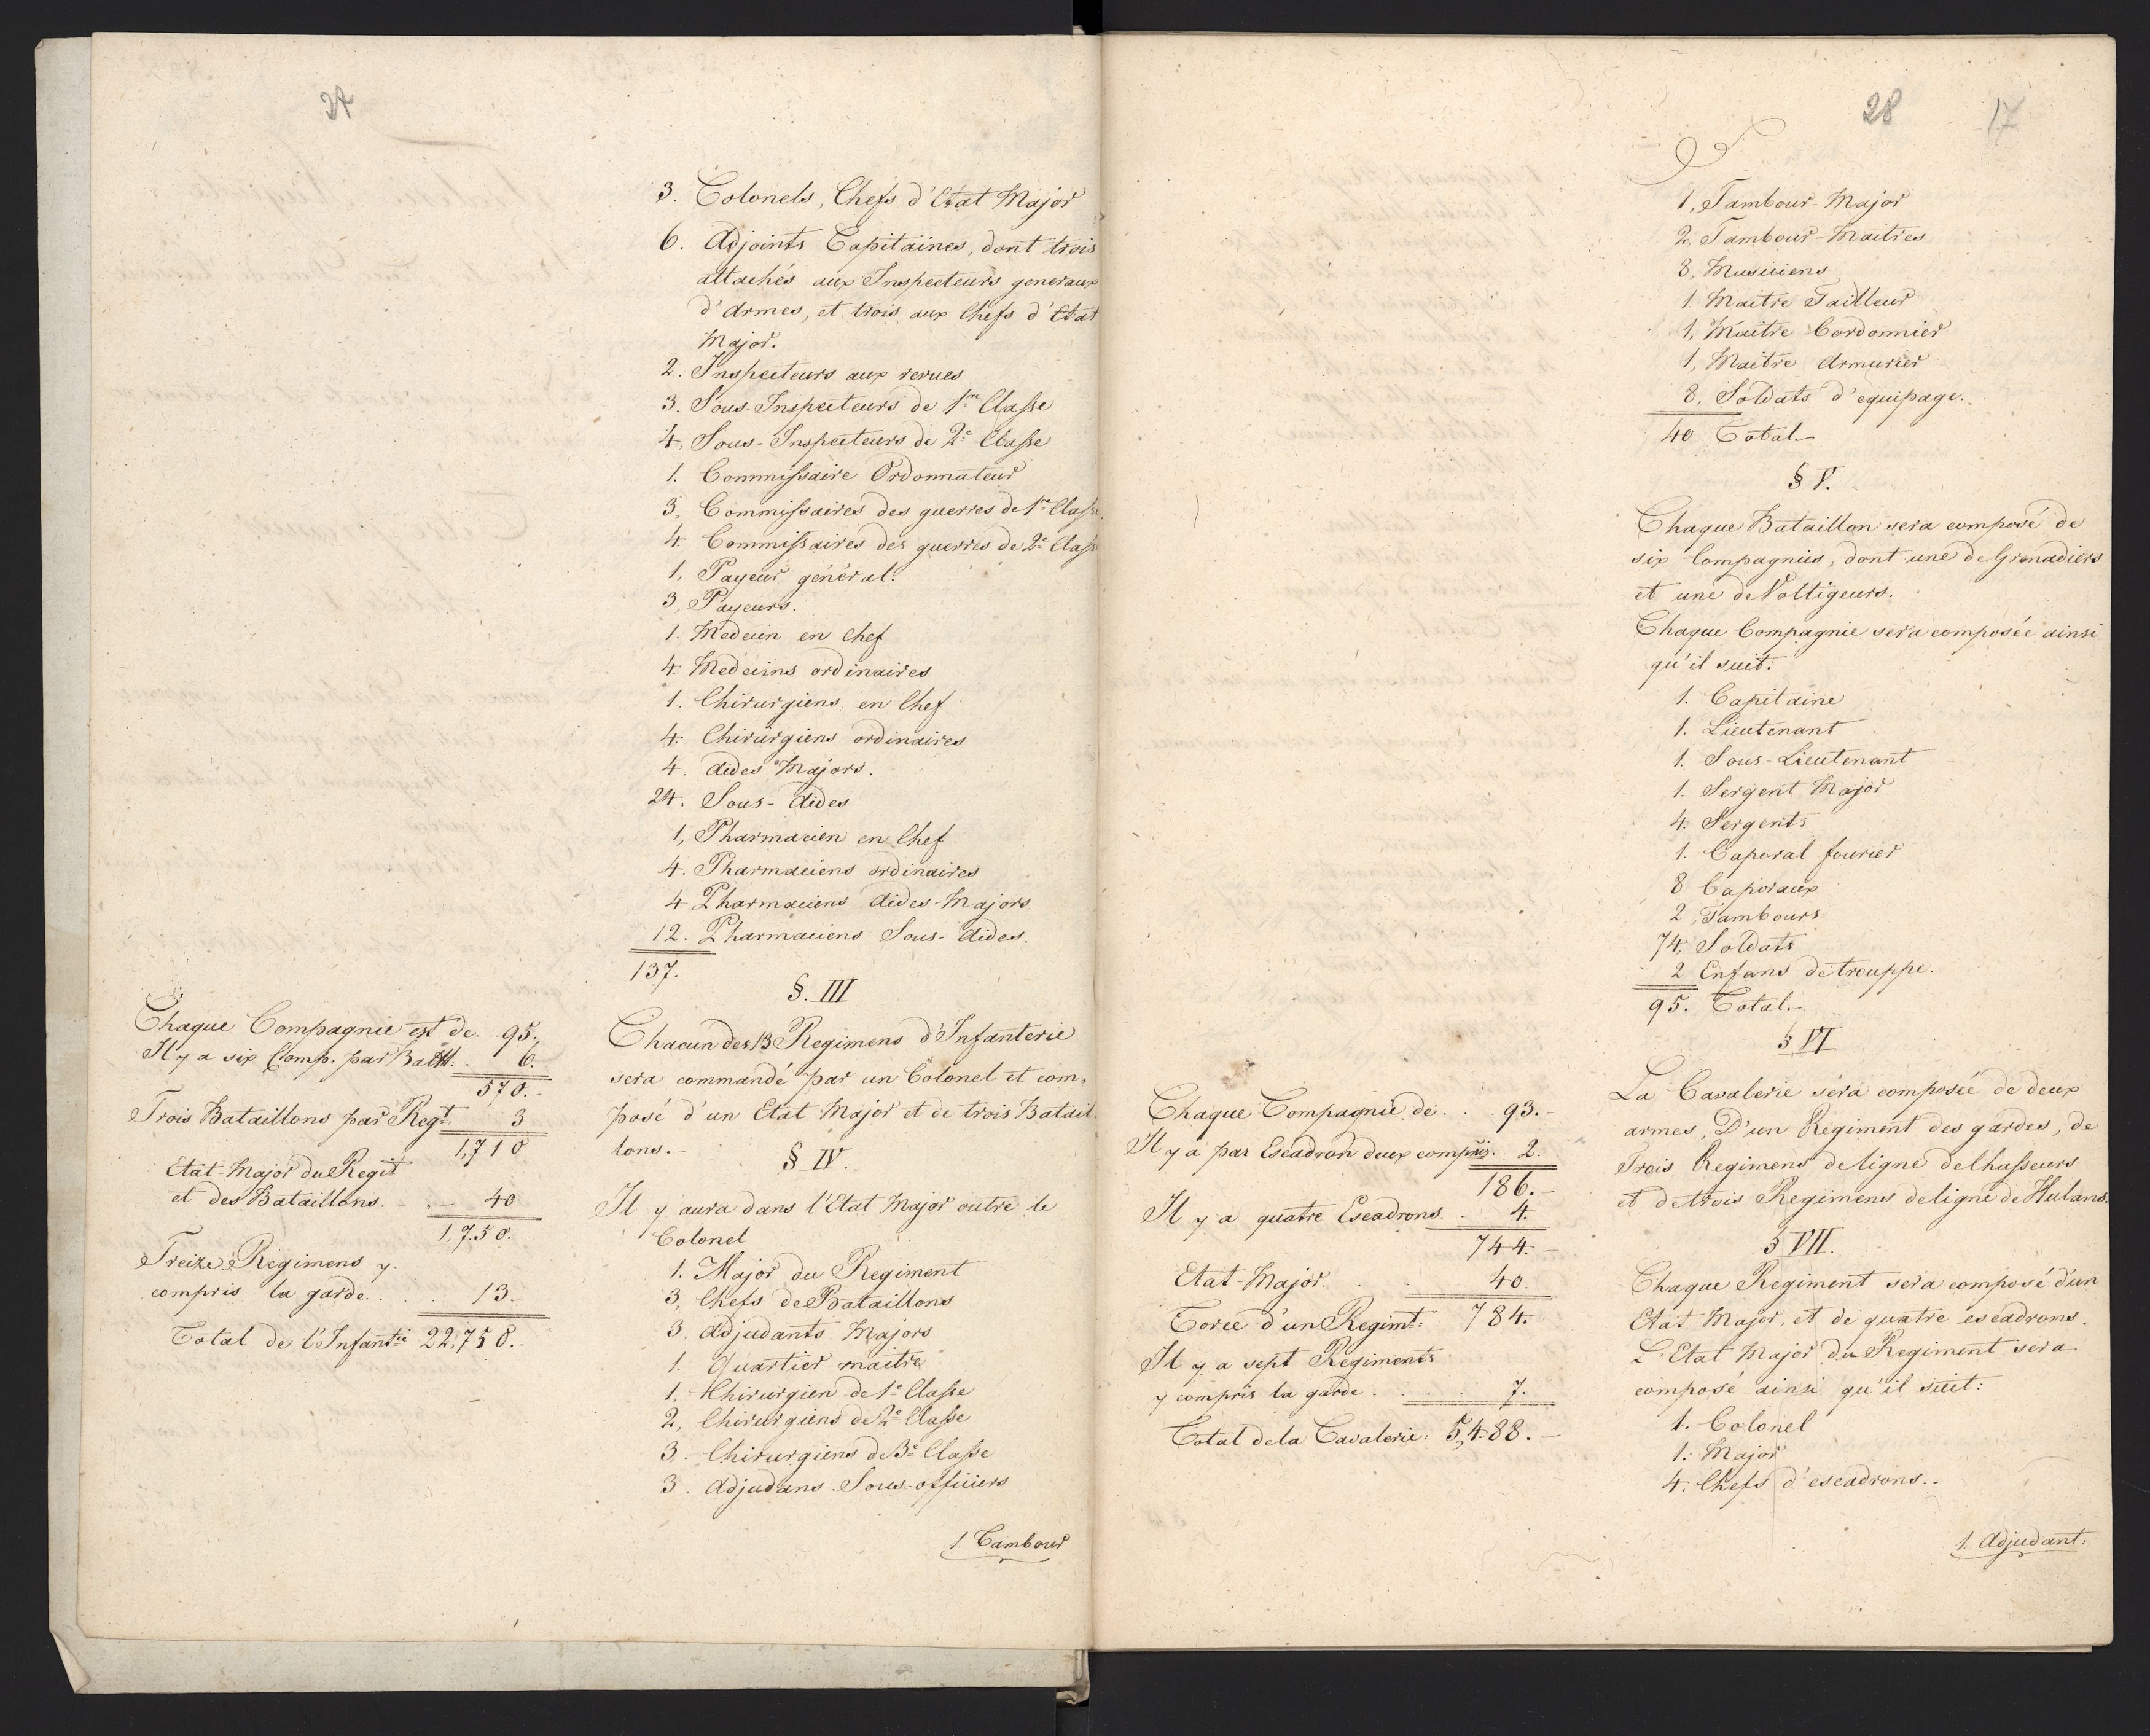 27
3. Colonels, Chefs d'Etat Major
6. Adjoints Capitaines, dont trois
attachés aux Inspecteurs generaux
d'Armes, et trois aux Chefs d'Etat
Major.
2. Inspecteurs aux revues
3. Sous-Inspecteurs de 1re Classe
4, Sous-Inspecteurs de 2e Classe
1. Commissaire Ordonnateur
3, Commissaires des guerres de 1re Classe
4. Commissaires des guerres de 2e Classe
1, Payeur général.
3, Payeurs.
1. Medecin en chef
4. Medecins ordinaires
1. Chirurgiens en Chef
4. Chirurgiens ordinaires
4. Aides Majors.
24. Sous-Aides
1, Pharmacien en Chef
4. Pharmaciens ordinaires
4 Pharmaciens Aides-Majors
12. Pharmaciens Sous-Aides.
137.
§. III
Chacun des 13 Regimens d'Infanterie
sera commandé par un Colonel et com-
posé d'un Etat Major et de trois Batail-
lons.
§ IV.
Il y aura dans l'Etat Major outre le
Colonel
1. Major du Regiment
3, Chefs de Bataillons
3. Adjudants Majors
1. Quartier maitre
1. Chirurgien de 1e Classe
2, Chirurgiens de 2e Classe
3. Chirurgiens de 3e Classe
3. Adjudans Sous-officiers
1. Tambour
Chaque Compagnie est de. 95.
Il y a six Comp. par Batll. . 6.
570.
Trois Bataillons par Regt. 3
1,710
Etat-Major du Regit
et des Bataillons. - . - 40
1,750.
Treize Regimens y
compris la garde. . . . 13.
Total de l'Infantie 22,750.
28 17
1, Tambour-Major
2, Tambour-Maitres
8, Musiciens
1. Maitre Tailleur
1, Maitre Cordonnier
1, Maitre Armurier
8, Soldats d'equipage.
40 Total.
§ V.
Chaque Bataillon sera composé de
six Compagnies, dont une de Grenadiers
et une de Voltigeurs.
Chaque Compagnie sera composée ainsi
qu'il suit:
1. Capitaine
1. Lieutenant
1. Sous-Lieutenant
1. Sergent Major
4. Sergents
1. Caporal fourier
8 Caporaux
2, Tambours
74, Soldats
2 Enfans de trouppe.
95. Total.
§ VI
La Cavalerie sera composée de deux
armes, D'un Regiment des gardes, de
Trois Regimens de ligne de Chasseurs
et de trois Regimens de ligne de Hulans.
§ VII.
Chaque Regiment sera composé d'un
Etat Major, et de quatre escadrons.
L'Etat Major du Regiment sera
composé ainsi qu'il suit:
1. Colonel
1. Major
4. Chefs d'escadrons.
1. Adjudant:
Chaque Compagnie de. . 93.
Il y a par Escadron deux compis. 2.
186.
Il y a quatre Escadrons. . . 4.
744.
Etat-Major. . . 40.
Force d'un Regimt: 784.
Il y a sept Regiments
y compris la garde. . . . 7.
Total de la Cavalerie: 5,488.